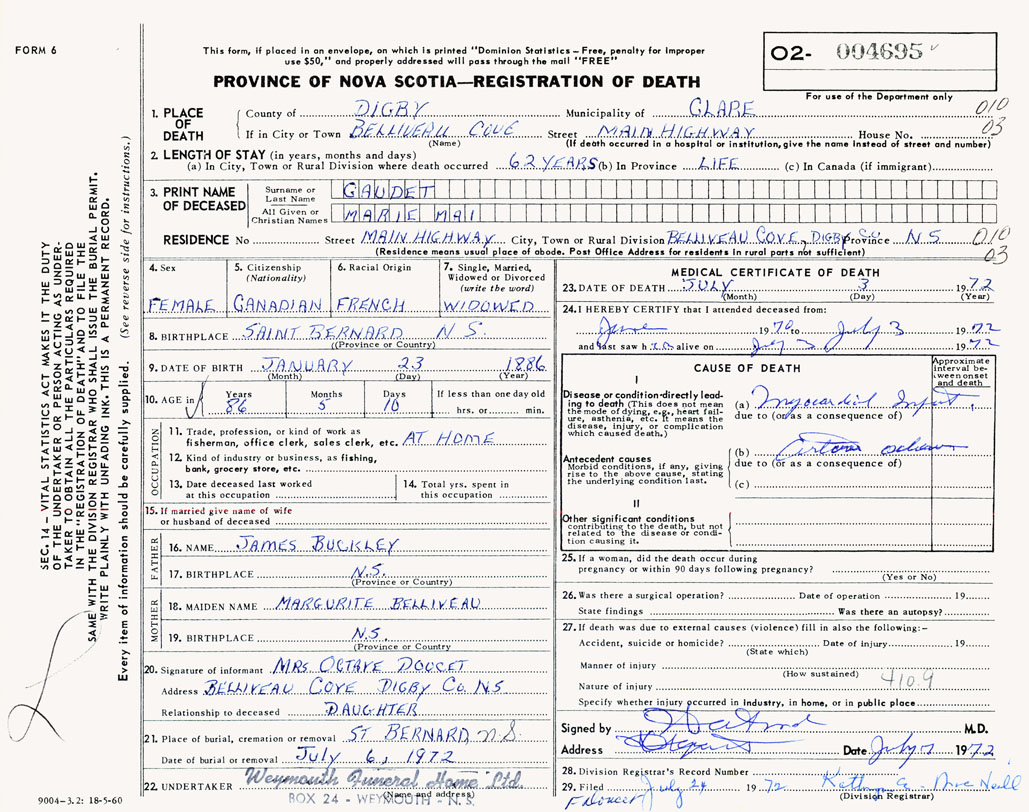 FORM 6
This form, if placed in an envelope, on which is printed "Dominion Statistics – Free, penalty for improper
use $50," and properly addressed will pass through the mail "FREE"
PROVINCE OF NOVA SCOTIA—REGISTRATION OF DEATH
02- 004695
For use of the Department only
010
03
1. PLACE OF DEATH
County of DIGBY Municipality of CLARE
If in City or Town BELLIVEAU COVE Street MAIN HIGHWAY House No.
(Name) (If death occurred in a hospital or institution, give the name instead of street and number)
2. LENGTH OF STAY (in years, months and days)
(a) In City, Town or Rural Division where death occurred 62 YEARS (b) In Province LIFE (c) In Canada (if immigrant)
3. PRINT NAME OF DECEASED
Surname or Last Name GAUDET
All Given or Christian Names MARIE MAI
RESIDENCE No Street MAIN HIGHWAY City, Town or Rural Division BELLIVEAU COVE, DIGBY Co Province N S
010
03
(Residence means usual place of abode. Post Office Address for residents in rural parts not sufficient)
4. Sex
FEMALE
5. Citizenship (Nationality)
CANADIAN
6. Racial Origin
FRENCH
7. Single, Married, Widowed or Divorced (write the word)
WIDOWED
8. BIRTHPLACE SAINT BERNARD N S.
(Province or Country)
9. DATE OF BIRTH JANUARY 23 1886
(Month) (Day) (Year)
10. AGE in Years Months Days If less than one day old
86 5 10 hrs. or min.
OCCUPATION
11. Trade, profession, or kind of work as
fisherman, office clerk, sales clerk, etc. AT HOME
12. Kind of industry or business, as fishing,
bank, grocery store, etc.
13. Date deceased last worked
at this occupation
14. Total yrs. spent in
this occupation
15. If married give name of wife
or husband of deceased
FATHER
16. NAME JAMES BUCKLEY
17. BIRTHPLACE N.S.
(Province or Country)
MOTHER
18. MAIDEN NAME MARGURITE BELLIVEAU
19. BIRTHPLACE N.S.
(Province or Country
20. Signature of informant MRS OCTAVE DOUCET
Address BELLIVEAU COVE DIGBY CO. NS
Relationship to deceased DAUGHTER
21. Place of burial, cremation or removal ST BERNARD, N.S.
Date of burial or removal July 6, 1972
22. UNDERTAKER Weymouth Funeral Home Ltd.
(Name and address)
BOX 24 - WEYMOUTH - N.S.
MEDICAL CERTIFICATE OF DEATH
23. DATE OF DEATH JULY 3 1972
(Month) (Day) (Year)
24. I HEREBY CERTIFY that I attended deceased from:
June 1970 to July 3 1972
and last saw h alive on July 3 1972
CAUSE OF DEATH
Approximate interval between onset and death
I
Disease or condition directly leading to death (This does not mean
the mode of dying, e.g., heart failure, asthenia, etc. It means the
disease, injury, or complication
which caused death.)
(a) Myocardial Infarct.
due to (or as a consequence of)
Antecedent causes
Morbid conditions, if any, giving
rise to the above cause, stating
the underlying condition last.
(b)
due to (or as a consequence of)
(c)
II
Other significant conditions
contributing to the death, but not
related to the disease or condition causing it.
25. If a woman, did the death occur during
pregnancy or within 90 days following pregnancy?
(Yes or No)
26. Was there a surgical operation? Date of operation 19
State findings Was there an autopsy?
27. If death was due to external causes (violence) fill in also the following:–
Accident, suicide or homicide? Date of injury 19
(State which)
Manner of injury
(How sustained)
Nature of injury 410.9
Specify whether injury occurred in industry, in home, or in public place
Signed by M.D.
Address Date July 7 1972
28. Division Registrar's Record Number
29. Filed July 24 1972
(Division Registrar)
SEC. 14 – VITAL STATISTICS ACT MAKES IT THE DUTY
OF THE UNDERTAKER OR PERSON ACTING AS UNDERTAKER TO OBTAIN ALL THE PARTICULARS REQUIRED
IN THE "REGISTRATION OF DEATH" AND TO FILE THE
SAME WITH THE DIVISION REGISTRAR WHO SHALL ISSUE THE BURIAL PERMIT.
WRITE PLAINLY WITH UNFADING INK. THIS IS A PERMANENT RECORD.
Every item of information should be carefully supplied. (See reverse side for instructions.)
9004-3.2: 18-5-60